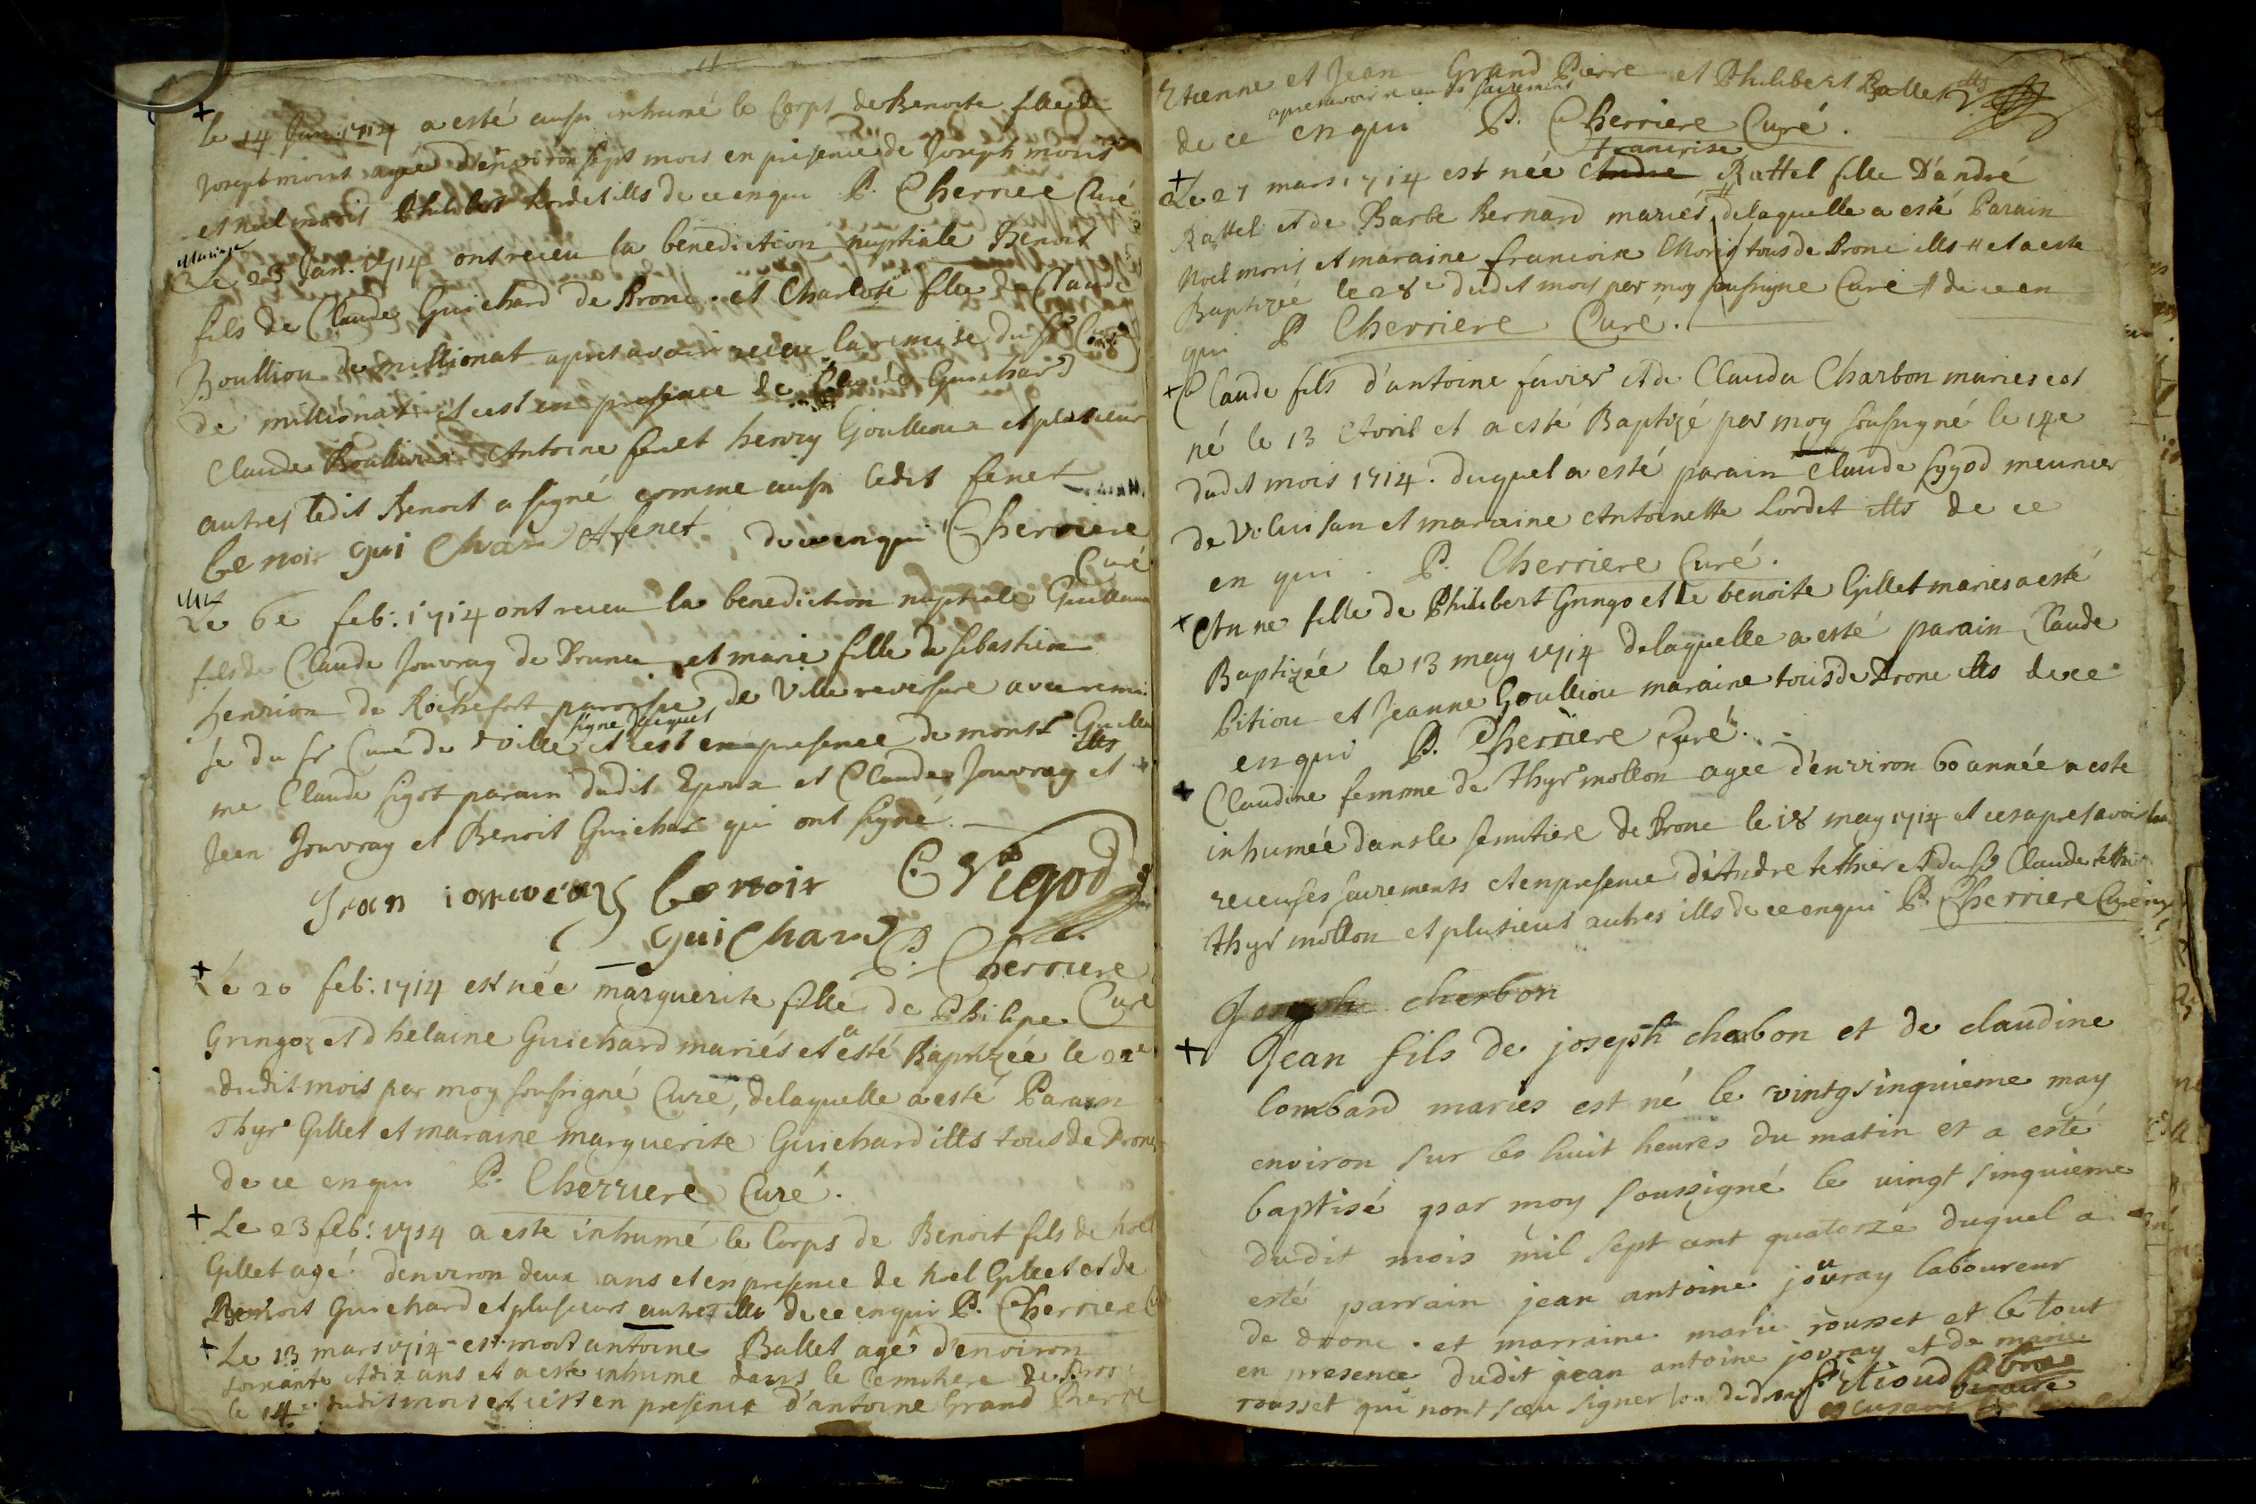 le 14 Jan: 1714 a esté aussi inhumé le Corps de Benoite fille de
Joseph moris agée d'environ sept mois en presence de Joseph moris
et noel moris Philibert Lordet ills de ce enqui P. Cherriere Curé
Mariage
Le 23 Jan. 1714 ont receu la benediction nuptiale Benoit
fils de Claude Guichard de Dronc. et Charlote fille de Claude
Boullion de millionat apres avoir receu la remise du Sr Curé
de millionat et cest en presence de Claude Guichard
Claude Boullion Antoine fenet henry Goullioux et plusieur
autres ledit Benoit a signé comme aussi ledit fenet
benoir gui Chard A fenet. de ce enqui Cherriere
Curé
Le 6e feb: 1714 ont receu la benediction nuptiale Guillaume
fils de Claude Jouvray de Drunc et marie fille de sebastien
henrion de Rochefort paroisse de Villereversure avec remi
signé Jacquet
se du sr Curé de Ville et cest en presence de monsr Guillau
me Claude Sigot parain dudit Epoux et Claude Jouvray et ills
Jean Jouvray et Benoit Guichar qui ont signé.
Jean iouveray benoir C Vigod
gui Chard P. Cherriere
Curé
Le 20 feb: 1714 est née marguerite fille de Philipe
Gringoz et d helaine Guichard mariés et a esté Baptizée le 21e
dudit mois par moy soussigné Curé, delaquelle a esté Parain
Thyr Gillet et maraine marguerite Guichard ills tous de Dronc
de ce enqui P. Cherriere Curé.
Le 23 feb: 1714 a este inhumé le Corps de Benoit fils de noel
Gillet agé d'environ deux ans et en presence de noel Gillet et de
Benoit Guichard et plusieurs autres ills de ce enqui P. Cherriere C
Le 13 mars 1714 est mort antoine Ballet agé d'environ
soixante et dix ans et a este inhumé dans le Cemitiere de Dronc
le 14e dudit mois et cest en presence d'antoine Grand Pierre
Etienne et Jean Grand Pierre et Philibert Ballet ills
apres avoir receu ses sacrements
de ce enqui P. Cherriere Curé.
francoise
Le 27 mars 1714 est née Andre Rattel fille D'andré
Rattel et de Barbe Bernard mariés delaquelle a esté Parain
Noel moris et maraine francoise Moris tous de Dronc ills et a este
Baptizée le 28e dudit mois par moy soussigne Curé de ce en
qui P Cherriere Curé.
Claude fils d'antoine favier et de Clauda Charbon maries est
né le 13 Avril et a esté Baptizé par moy soussigné le 14e
dudit mois 1714. duquel a esté parain Claude Sygod meunier
de Voluisan et maraine Antoinette Lordet ills de ce
en qui. P. Cherriere Curé.
Anne fille de Philibert Gringo et de benoite Gillet maries a esté
Baptizée le 13 may 1714 delaquelle a esté parain Claude
Pitiou et Jeanne Goulliou maraine tous de Dronc ills de ce
enqui P. Cherriere Curé.
Claudine femme de Thyr mollon agée d'environ 60 année a este
inhumée dans le semitiere de Dronc le 18 may 1714 et ce apres avoir
receu ses sacrements et en presence d'Andre tethier et du sr Claude tethier
Thyr mollon et plusieurs autres ills de ce enqui P. Cherriere Curé
Joseph cherbon
Jean fils de joseph charbon et de claudine
lombard maries est né le vintgsinquieme may
environ sur les huit heures du matin et a esté
baptisé par moy soussigné le vingt sinquieme
dudit mois mil sept cent quatorze duquel a
esté parrain jean antoine jouvray laboureur
de dronc. et marraine marie rousset et le tout
en presence dudit jean antoine jovray et de marie
rousset qui nont sceu signer Pitioud